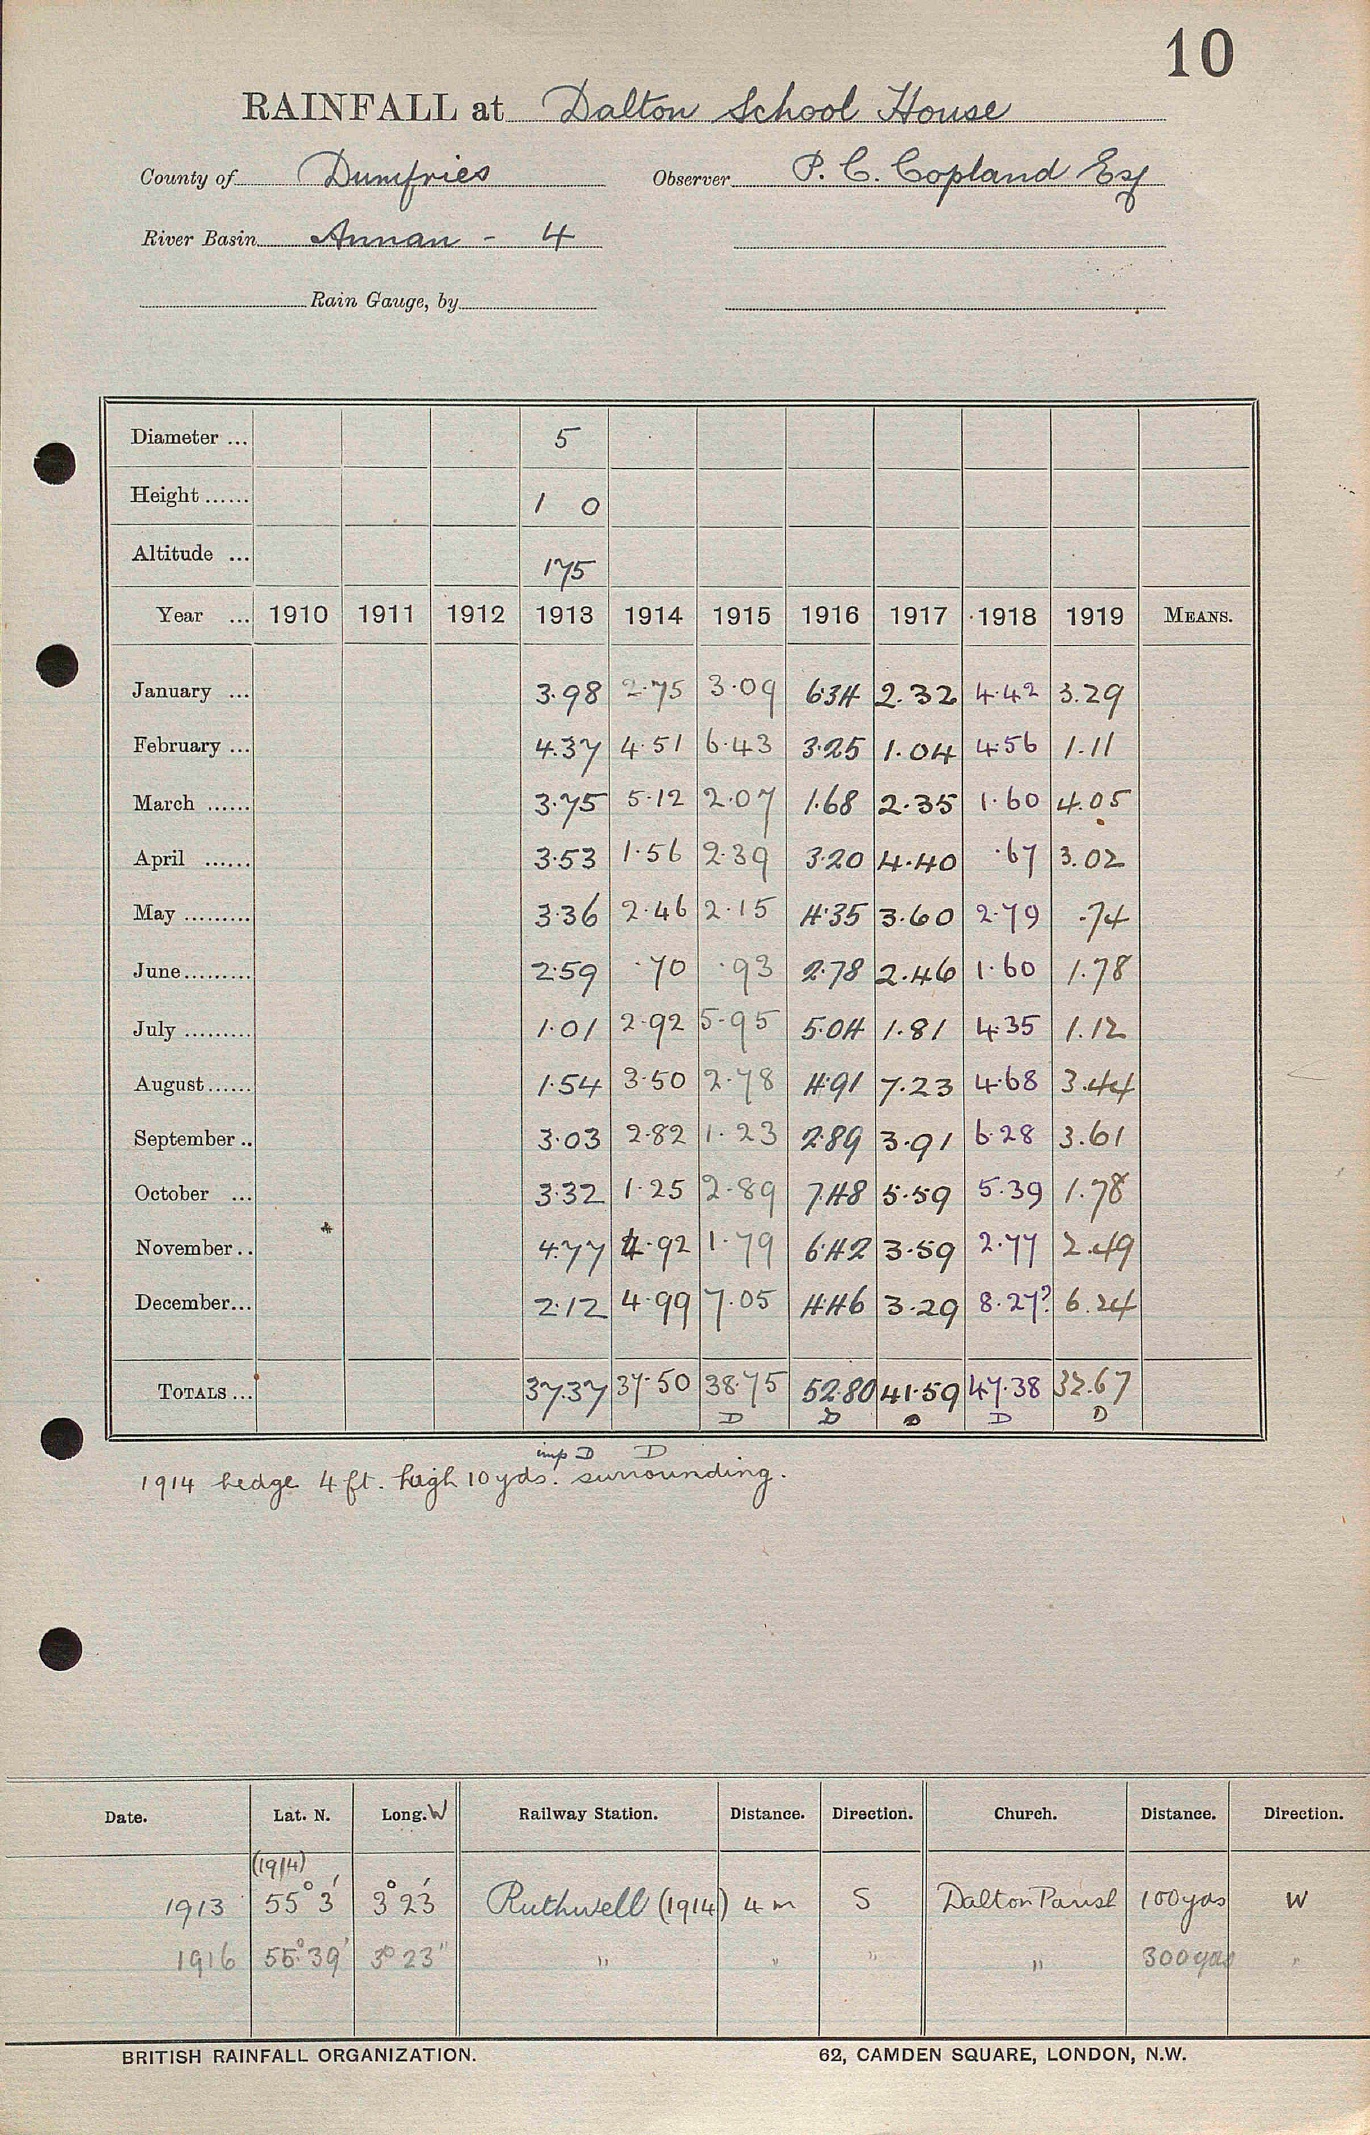 10
RAINFALL at Dalton School House
County of Dumfries Observer P. C. Copland Esq
River Basin Annan - 4
Rain Gauge, by
Diameter ... 5
Height ...... 1 0
Altitude ... 175
Year ... 1910 1911 1912 1913 1914 1915 1916 1917 1918 1919 MEANS.
January ... 3.98 2.75 3.09 6.34 2.32 4.42 3.29
February ... 4.37 4.51 6.43 3.25 1.04 4.56 1.11
March ...... 3.75 5.12 2.07 1.68 2.35 1.60 4.05
April ...... 3.53 1.56 2.39 3.20 4.40 .67 3.02
May ......... 3.36 2.46 2.15 4.35 3.60 2.79 .74
June......... 2.59 .70 .93 2.78 2.46 1.60 1.78
July ......... 1.01 2.92 5.95 5.04 1.81 4.35 1.12
August...... 1.54 3.50 2.78 4.91 7.23 4.68 3.44
September .. 3.03 2.82 1.23 2.89 3.91 6.28 3.61
October ... 3.32 1.25 2.89 7.48 5.59 5.39 1.78
November .. 4.77 4.92 1.79 6.42 3.59 2.77 2.49
December... 2.12 4.99 7.05 4.46 3.29 8.27? 6.24
TOTALS ... 37.37 37.50 38.75 52.80 41.59 47.38 32.67
D D D D D
imp D D
1914 hedge 4 ft. high 10 yds. surrounding.
Date. Lat. N. Long. W Railway Station. Distance. Direction. Church. Distance. Direction.
(1914)
1913 55° 3' 3° 23' Ruthwell (1914) 4 m S Dalton Parish 100 yds W
1916 55° 39' 3° 23" " " " " 300 yds "
BRITISH RAINFALL ORGANIZATION. 62, CAMDEN SQUARE, LONDON, N.W.